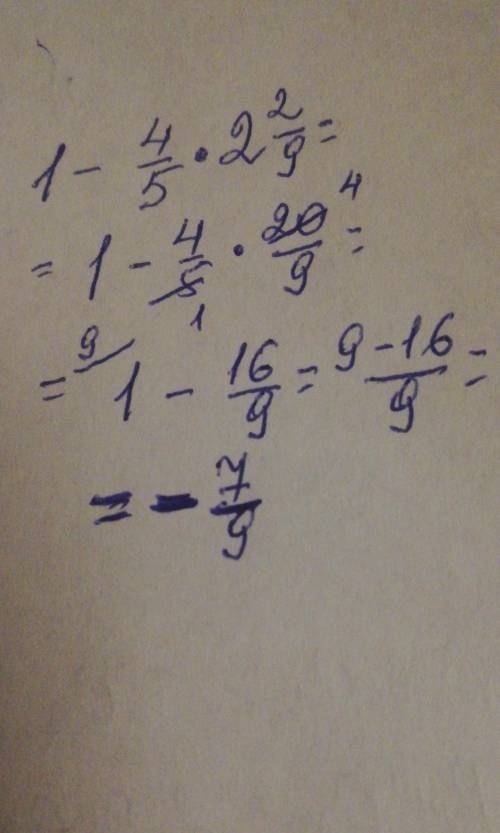 1 - 4/5 · 2 2/9 =
= 1 - 4/5 1 · 20/9 4 =
= 9/ 1 - 16/9 = 9-16/9 =
= - 7/9